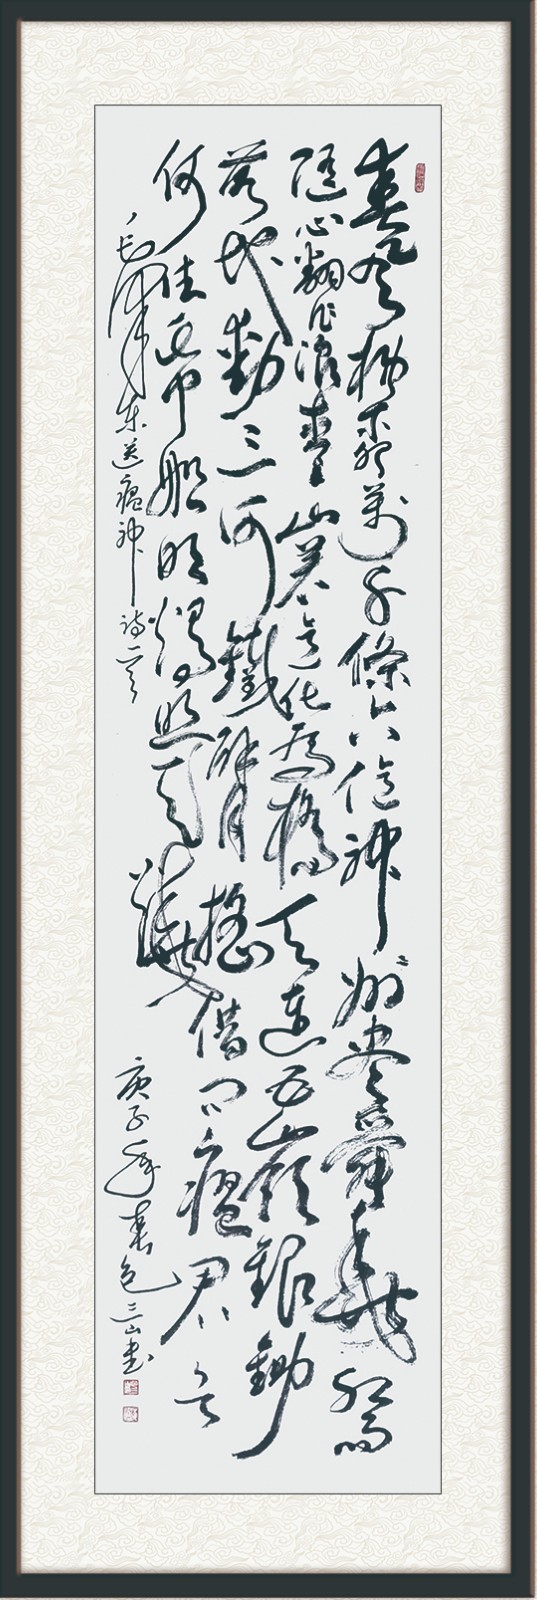 春風楊柳萬千條六億神州盡舜堯紅雨
隨心翻作浪青山著意化為橋天連五嶺銀鋤
落地動三河鐵臂搖借問瘟君欲
何往紙船明燭照天燒
毛澤東送瘟神詩一首
庚子年春包三山書